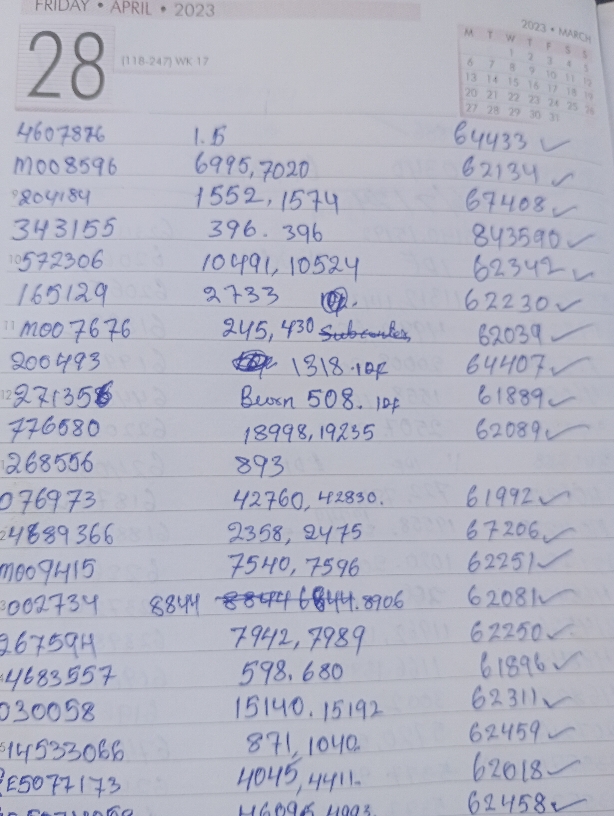 FRIDAY • APRIL • 2023
28 (118-247) WK 17
2023 • MARCH
M T W T F S S
1 2 3 4 5
6 7 8 9 10 11 12
13 14 15 16 17 18 19
20 21 22 23 24 25 26
27 28 29 30 31
4607876 1.5 64433 ✓
M008596 6995,7020 62134 ✓
9 204184 1552, 1574 67408 ✓
343155 396. 396 843590 ✓
10 572306 10491, 10524 62342 ✓
165129 2733 62230 ✓
11 M007676 245, 430 62039 ✓
200493 1318. 64407 ✓
12 271356 508. 61889 ✓
776580 18998, 19235 62089 ✓
1 268556 893
076973 42760, 42830. 61992 ✓
2358, 2475 67206 ✓
M009415 7540, 7596 62251 ✓
002734 8844 8906 62081 ✓
267594 7942, 7989 62250 ✓
4683557 598. 680 61896 ✓
030058 15140. 15192 62311 ✓
14533066 871, 1040. 62459 ✓
E5077173 4045, 4411. 62018 ✓
62458 ✓